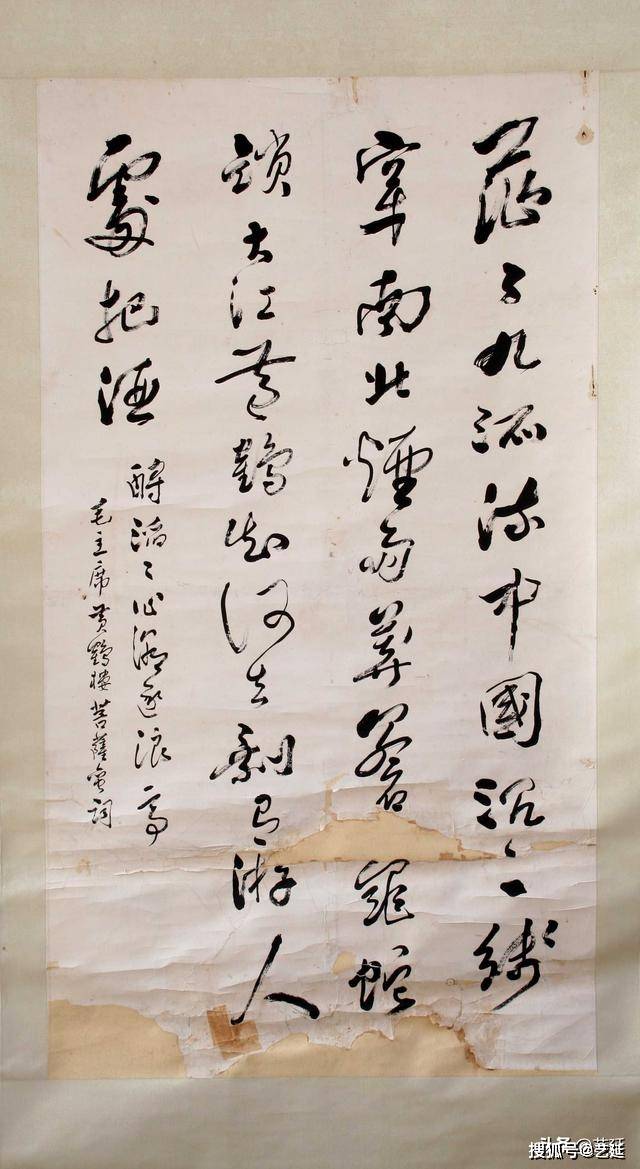 茫〻九派流中國沉〻一綫
穿南北煙雨莽蒼龜蛇
鎖大江黃鶴知何去剩有游人
處把酒
酹滔〻心潮逐浪高
毛主席黃鶴樓菩薩蠻詞
头条@艺延
搜狐号@艺延